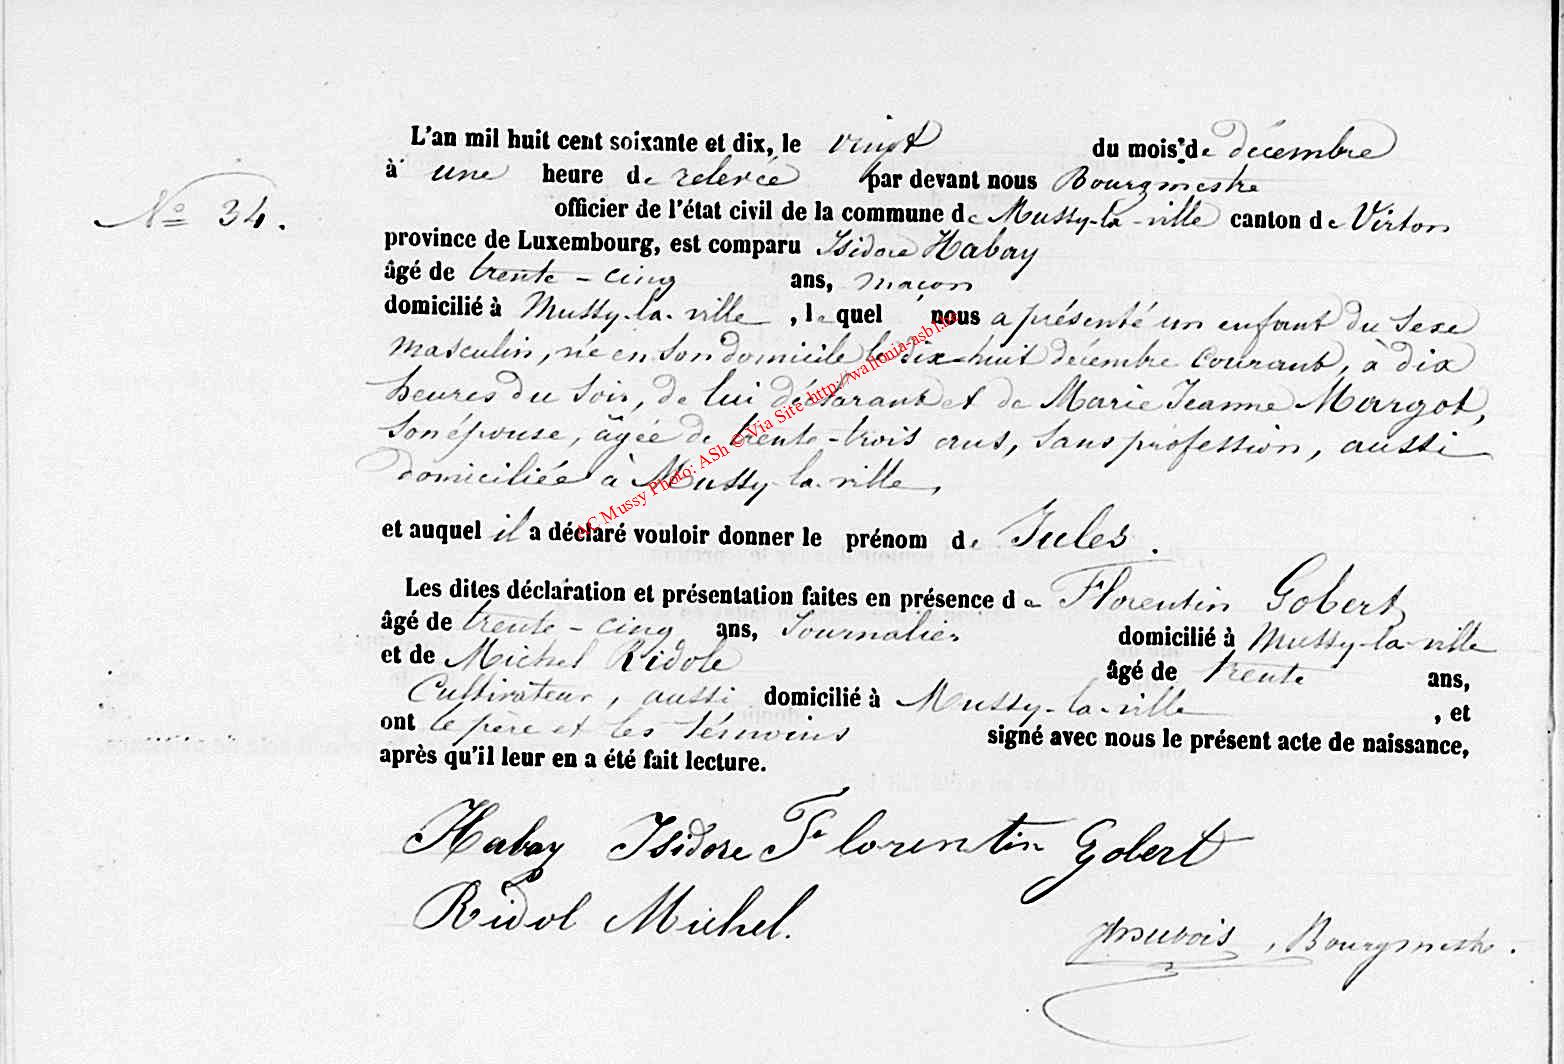 L'an mil huit cent soixante et dix, le vingt du mois de décembre
à une heure de relevée par devant nous Bourgmestre
No 34.
officier de l'état civil de la commune de Mussy-la-ville canton de Virton
province de Luxembourg, est comparu Isidore Habay
âgé de trente-cinq ans, maçon
domicilié à Mussy-la-ville, lequel nous a présenté un enfant du sexe
masculin, né en son domicile le dix-huit décembre courant, à dix
heures du soir, de lui déclarant et de Marie Jeanne Margot,
son épouse, âgée de trente-trois ans, sans profession, aussi
domiciliée à Mussy-la-ville,
et auquel il a déclaré vouloir donner le prénom de Jules.
Les dites déclaration et présentation faites en présence de Florentin Gobert
âgé de trente-cinq ans, Journalier domicilié à Mussy-la-ville
et de Michel Ridole âgé de trente ans,
Cultivateur, aussi domicilié à Mussy-la-ville, et
ont le père et les témoins signé avec nous le présent acte de naissance,
après qu'il leur en a été fait lecture.
Habay Isidore Florentin Gobert
Ridol Michel.
Dubois, Bourgmestre.
AC Mussy Photo: ASh © Via Site http://wallonia-asbl.be